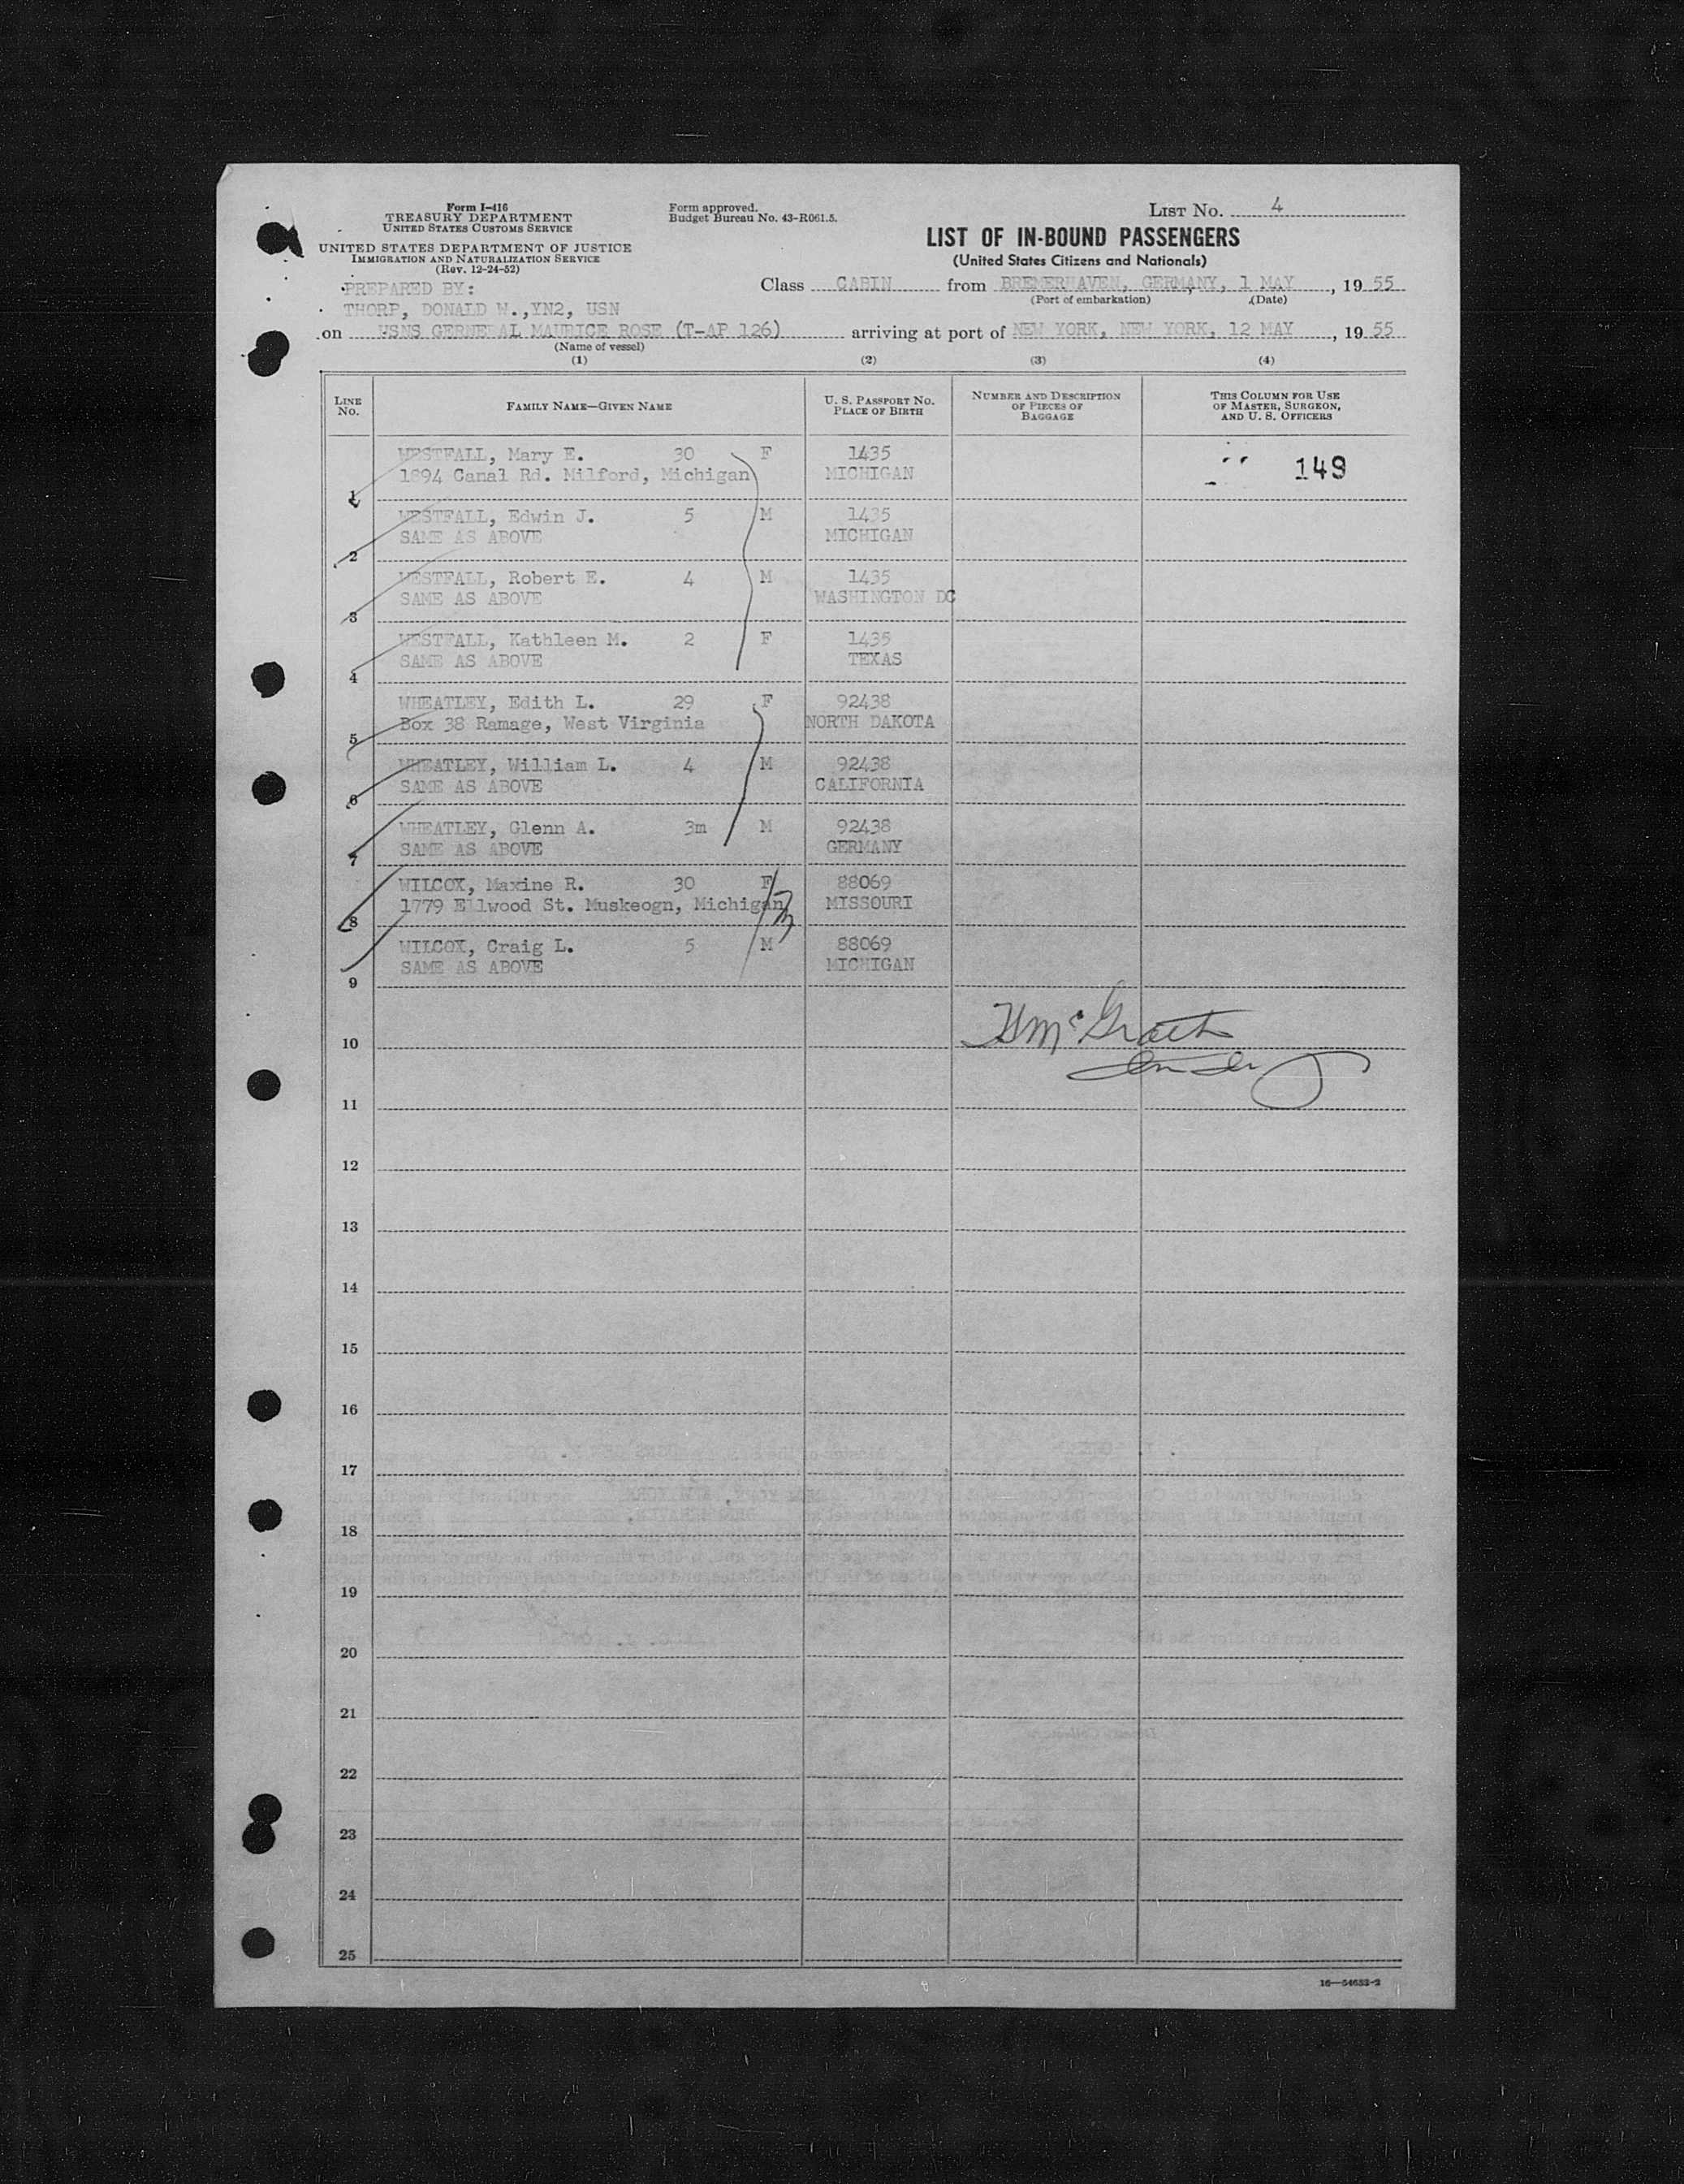 Form I-416
TREASURY DEPARTMENT
UNITED STATES CUSTOMS SERVICE
UNITED STATES DEPARTMENT OF JUSTICE
IMMIGRATION AND NATURALIZATION SERVICE
(Rev. 12-24-52)
Form approved.
Budget Bureau No. 43-R061.5.
LIST NO. 4
LIST OF IN-BOUND PASSENGERS
(United States Citizens and Nationals)
PREPARED BY:
THORP, DONALD W.,YN2, USN
Class CABIN from BREMERHAVEN, GERMANY, 1 MAY, 19 55
(Port of embarkation) (Date)
on USNS GERNELAL MAURICE ROSE (T-AP 126) arriving at port of NEW YORK, NEW YORK, 12 MAY, 19 55
(Name of vessel)
(1) (2) (3) (4)
LINE NO. FAMILY NAME—GIVEN NAME U. S. PASSPORT NO. PLACE OF BIRTH NUMBER AND DESCRIPTION OF PIECES OF BAGGAGE THIS COLUMN FOR USE OF MASTER, SURGEON, AND U. S. OFFICERS
WESTFALL, Mary E. 30 F 1435 149
1894 Canal Rd. Milford, Michigan MICHIGAN
1
WESTFALL, Edwin J. 5 M 1435
SAME AS ABOVE MICHIGAN
2
WESTFALL, Robert E. 4 M 1435
SAME AS ABOVE WASHINGTON DC
3
WESTFALL, Kathleen M. 2 F 1435
SAME AS ABOVE TEXAS
4
WHEATLEY, Edith L. 29 F 92438
Box 38 Ramage, West Virginia NORTH DAKOTA
5
WHEATLEY, William L. 4 M 92438
SAME AS ABOVE CALIFORNIA
6
WHEATLEY, Glenn A. 3m M 92438
SAME AS ABOVE GERMANY
7
WILCOX, Maxine R. 30 F 88069
1779 Ellwood St. Muskeogn, Michigan MISSOURI
8
WILCOX, Craig L. 5 M 88069
SAME AS ABOVE MICHIGAN
9
McGrath
10
11
12
13
14
15
16
17
18
19
20
21
22
23
24
25
16—54653-2